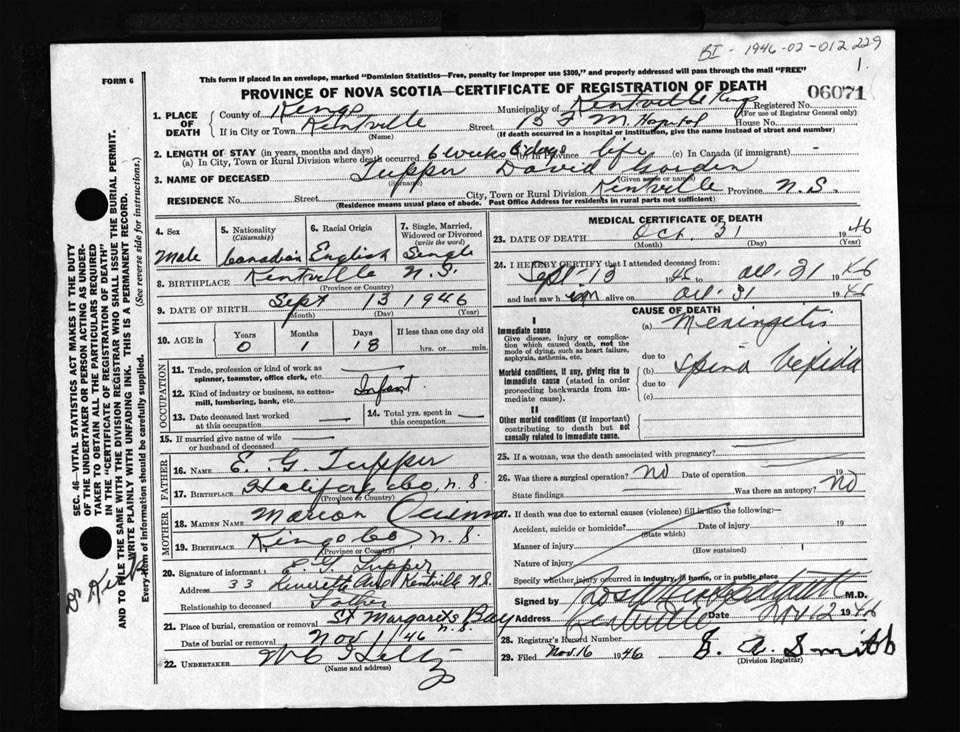 BI - 1946-02-012229
1.
FORM 6
This form if placed in an envelope, marked "Dominion Statistics—Free, penalty for improper use $300," and properly addressed will pass through the mail "FREE"
PROVINCE OF NOVA SCOTIA—CERTIFICATE OF REGISTRATION OF DEATH
06071
SEC. 46—VITAL STATISTICS ACT MAKES IT THE DUTY
OF THE UNDERTAKER OR PERSON ACTING AS UNDER-
TAKER TO OBTAIN ALL THE PARTICULARS REQUIRED
IN THE "CERTIFICATE OF REGISTRATION OF DEATH"
AND TO FILE THE SAME WITH THE DIVISION REGISTRAR WHO SHALL ISSUE THE BURIAL PERMIT.
WRITE PLAINLY WITH UNFADING INK. THIS IS A PERMANENT RECORD.
Every item of information should be carefully supplied. (See reverse side for instructions.)
1. PLACE OF DEATH
County of Kings Municipality of Kentville Kings Registered No.
(For use of Registrar General only)
If in City or Town Kentville Street B F M Hospital House No.
(Name) (If death occurred in a hospital or institution, give the name instead of street and number)
2. LENGTH OF STAY (in years, months and days)
(a) In City, Town or Rural Division where death occurred 6 weeks 6 days (b) In Province life (c) In Canada (if immigrant) —
3. NAME OF DECEASED Tupper David
(Surname) (Given name or names)
RESIDENCE No. Street City, Town or Rural Division Kentville Province N.S.
(Residence means usual place of abode. Post Office Address for residents in rural parts not sufficient)
4. Sex
Male
5. Nationality
(Citizenship)
Canadian
6. Racial Origin
English
7. Single, Married, Widowed or Divorced
(write the word)
Single
8. BIRTHPLACE Kentville N.S.
(Province or Country)
9. DATE OF BIRTH Sept 13 1946
(Month) (Day) (Year)
10. AGE in
Years 0
Months 1
Days 18
If less than one day old
hrs. or min.
OCCUPATION
11. Trade, profession or kind of work as
spinner, teamster, office clerk, etc. —
12. Kind of industry or business, as cotton-
mill, lumbering, bank, etc. Infant
13. Date deceased last worked
at this occupation —
14. Total yrs. spent in
this occupation —
15. If married give name of wife
or husband of deceased —
FATHER
16. NAME E. G. Tupper
17. BIRTHPLACE Halifax Co, N.S.
(Province or Country)
MOTHER
18. MAIDEN NAME Marion Quinn
19. BIRTHPLACE Kings Co, N.S.
(Province or Country)
20. Signature of informant E. G. Tupper
Address 33 Leverett Ave Kentville N.S.
Relationship to deceased Father
21. Place of burial, cremation or removal St Margarets Bay N.S.
Date of burial or removal Nov 1/46
22. UNDERTAKER W C Hiltz
(Name and address)
MEDICAL CERTIFICATE OF DEATH
23. DATE OF DEATH Oct. 31 1946
(Month) (Day) (Year)
24. I HEREBY CERTIFY that I attended deceased from:
Sept 13 1946 to Oct. 31 1946
and last saw him alive on Oct. 31 1946
CAUSE OF DEATH
I
Immediate cause
Give disease, injury or complica-
tion which caused death, not the
mode of dying, such as heart failure,
asphyxia, asthenia, etc.
(a) Meningetis
due to
Morbid conditions, if any, giving rise to
immediate cause (stated in order
proceeding backwards from im-
mediate cause).
(b) Spina
due to
(c)
II
Other morbid conditions (if important)
contributing to death but not
causally related to immediate cause.
25. If a woman, was the death associated with pregnancy? —
26. Was there a surgical operation? No Date of operation 19
State findings Was there an autopsy? No
27. If death was due to external causes (violence) fill in also the following:—
Accident, suicide or homicide? Date of injury 19
(State which)
Manner of injury
(How sustained)
Nature of injury
Specify whether injury occurred in industry, in home, or in public place
Signed by M.D.
Address Kentville Date Nov 12 1946
28. Registrar's Record Number
29. Filed Nov. 16 1946 A. Smith
(Division Registrar)